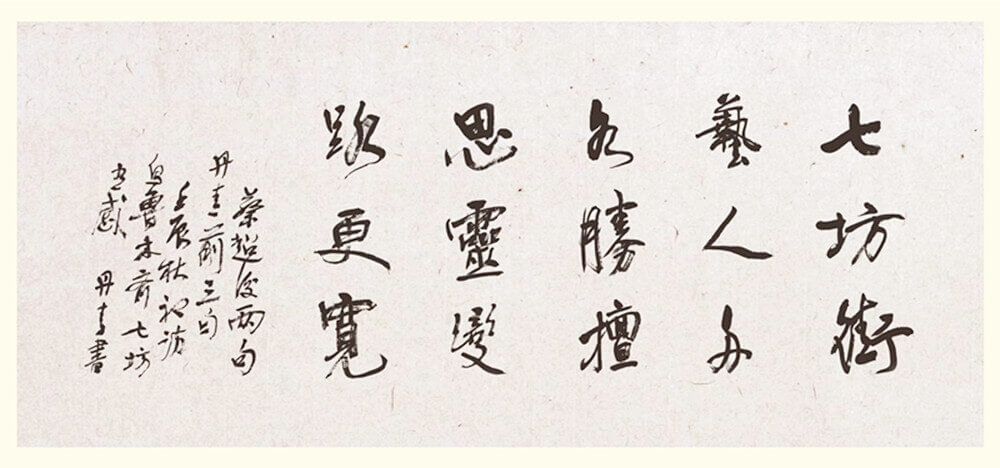 七坊街
藝人多
各勝擅
思靈變
路更寬
蔡超後兩句
丹青前三句
壬辰秋初訪
烏魯木齊七坊
感 丹青書